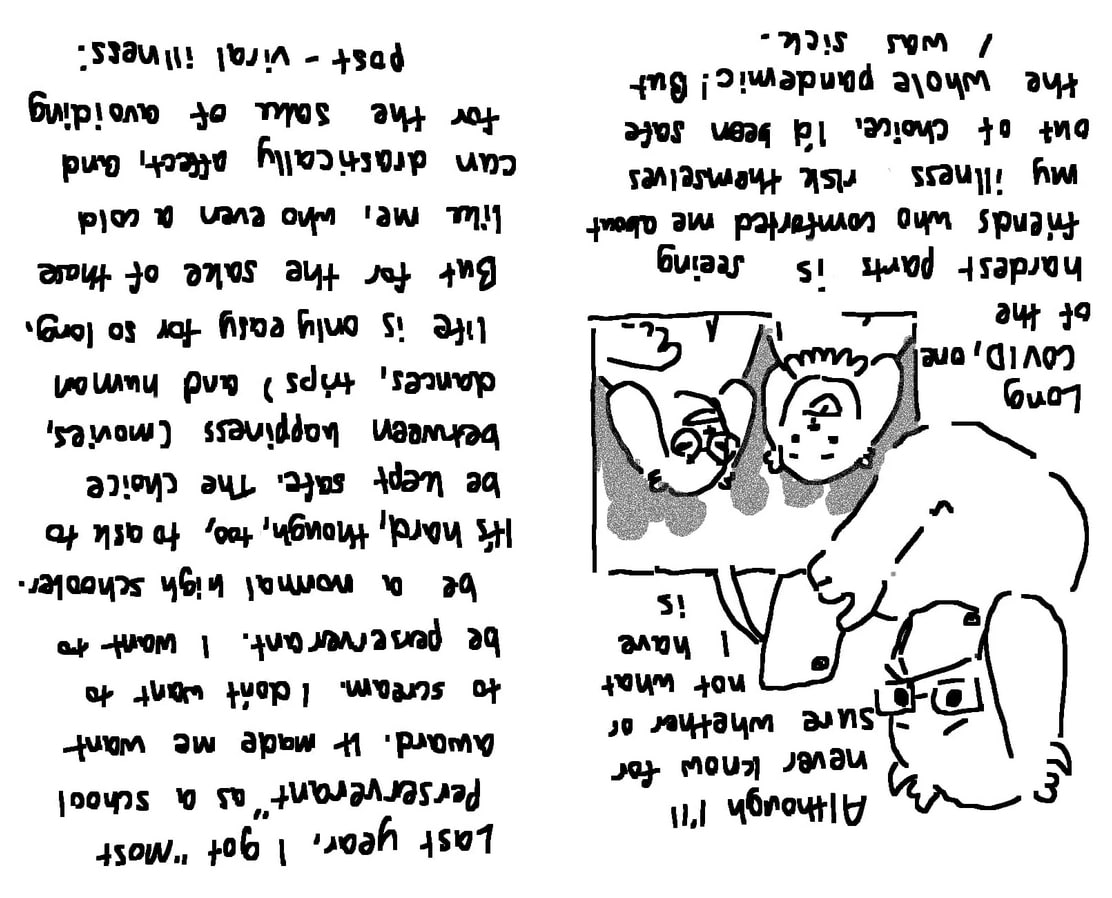 Although I'll
never know for
sure whether or
not what
I have
is
Long
COVID, one
of the
hardest parts is seeing
friends who comforted me about
my illness risk themselves
out of choice. I'd been safe
the whole pandemic! But
I was sick.
Last year, I got "Most
Perserverant" as a school
award. It made me want
to scream. I don't want to
be perserverant. I want to
be a normal high schooler.
It's hard, though, too, to ask to
be kept safe. The choice
between happiness (movies,
dances, trips) and human
life is only easy for so long.
But for the sake of those
like me, who even a cold
can drastically affect, and
for the sake of avoiding
post-viral illness.